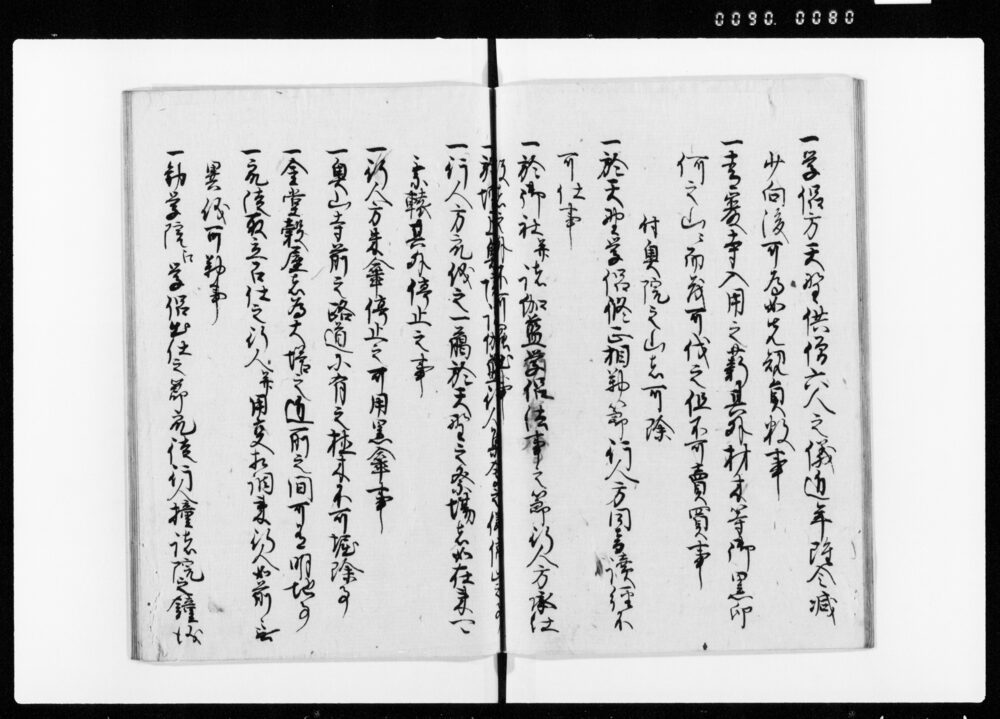 0090. 0080
一学侶方天野供僧六人之儀近年雖令減
少向後可為如先規員数事
一青巌寺入用之薪其外材木等御黒印
何之山ニ而茂可伐之但不可賣買事
付奥院之山者可除
一於天野学侶修正相勤節行人方同音読経不
可仕事
一於御社并諸伽藍学侶法事之節行人方承仕
一行人方衆徒之一﨟於天野之祭場者如在来一
乗轅其外停止之事
一行人方朱傘停止之可用黒傘事
一奥山寺前之路道ニ有之植木不可堀除事
一金堂穀屋者為大塔之道前之間可為明地事
一衆徒取立召仕之行人并用変於調来行人如前々無
異儀可勤事
一勧学院江学侶出仕之節衆徒行人撞諸院之鐘